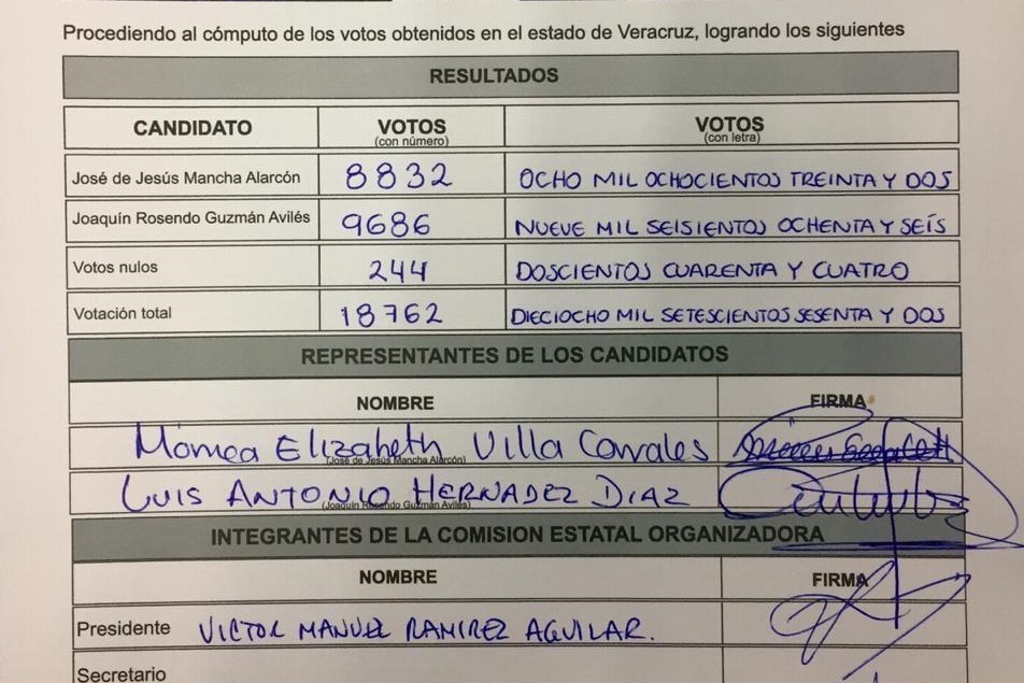 Procediendo al cómputo de los votos obtenidos en el estado de Veracruz, logrando los siguientes
RESULTADOS
CANDIDATO VOTOS (con número) VOTOS (con letra)
José de Jesús Mancha Alarcón 8832 OCHO MIL OCHOCIENTOS TREINTA Y DOS
Joaquín Rosendo Guzmán Avilés 9686 NUEVE MIL SEISIENTOS OCHENTA Y SEÍS
Votos nulos 244 DOSCIENTOS CUARENTA Y CUATRO
Votación total 18762 DIECIOCHO MIL SETESCIENTOS SESENTA Y DOS
REPRESENTANTES DE LOS CANDIDATOS
NOMBRE FIRMA
Mónica Elizabeth Villa Canales
(José de Jesús Mancha Alarcón)
LUIS ANTONIO HERNADEZ DIAZ
(Joaquín Rosendo Guzmán Avilés)
INTEGRANTES DE LA COMISION ESTATAL ORGANIZADORA
NOMBRE FIRMA
Presidente VICTOR MANUEL RAMIREZ AGUILAR.
Secretario